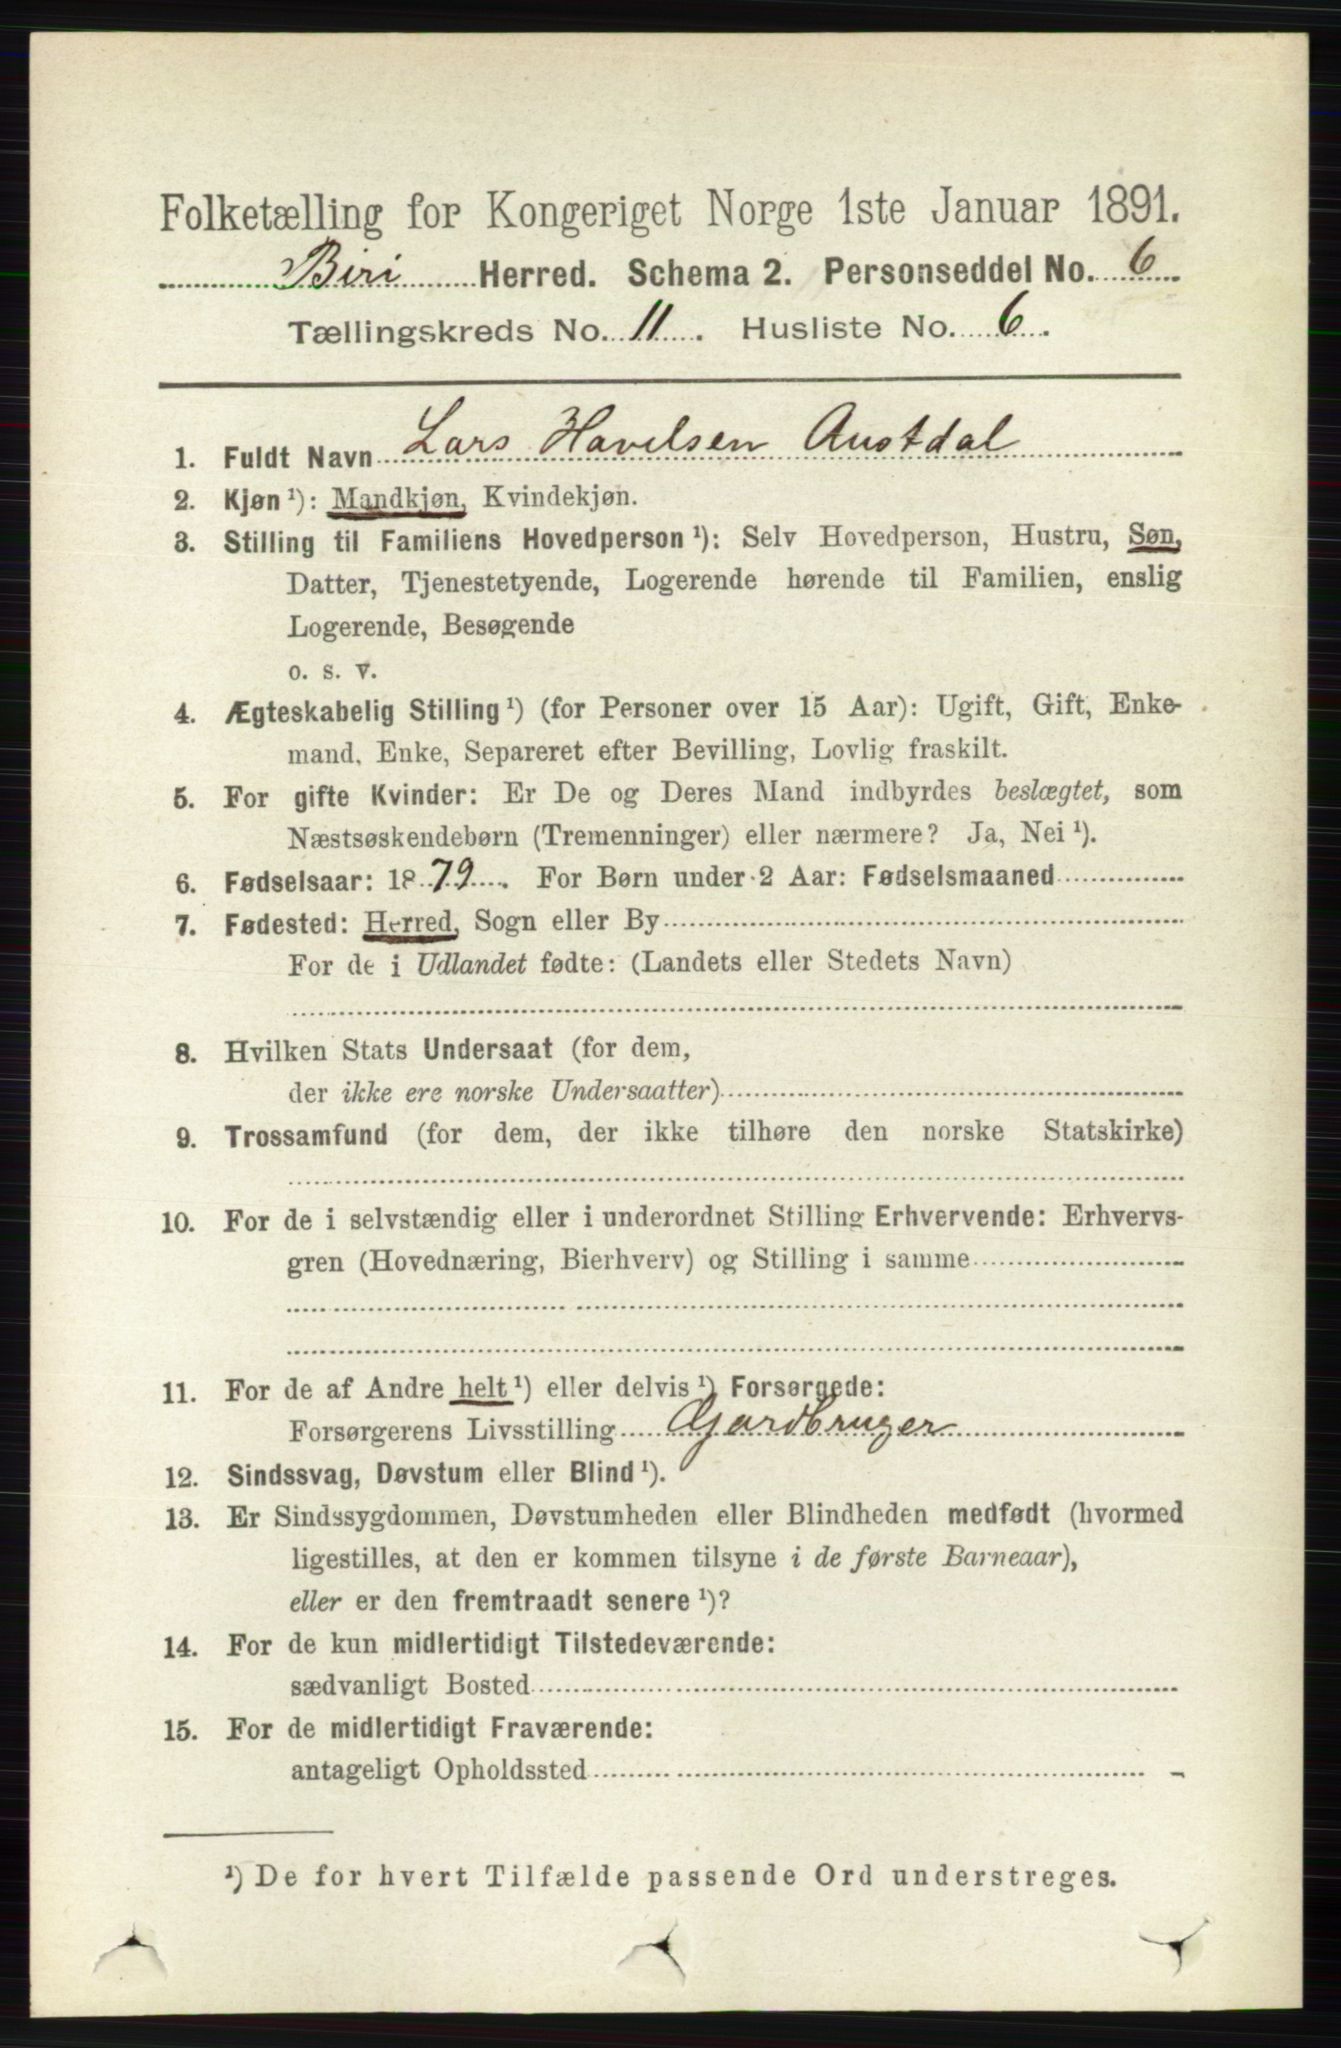 Folketælling for Kongeriget Norge 1ste Januar 1891.
Biri Herred. Schema 2. Personseddel No. 6
Tællingskreds No. 11. Husliste No. 6.
1. Fuldt Navn Lars Havelsen Austdal
2. Kjøn ¹): Mandkjøn, Kvindekjøn.
3. Stilling til Familiens Hovedperson ¹): Selv Hovedperson, Hustru, Søn,
Datter, Tjenestetyende, Logerende hørende til Familien, enslig
Logerende, Besøgende
o. s. v.
4. Ægteskabelig Stilling ¹) (for Personer over 15 Aar): Ugift, Gift, Enke-
mand, Enke, Separeret efter Bevilling, Lovlig fraskilt.
5. For gifte Kvinder: Er De og Deres Mand indbyrdes beslægtet, som
Næstsøskendebørn (Tremenninger) eller nærmere? Ja, Nei ¹).
6. Fødselsaar: 1879. For Børn under 2 Aar: Fødselsmaaned
7. Fødested: Herred, Sogn eller By
For de i Udlandet fødte: (Landets eller Stedets Navn)
8. Hvilken Stats Undersaat (for dem,
der ikke ere norske Undersaatter)
9. Trossamfund (for dem, der ikke tilhøre den norske Statskirke)
10. For de i selvstændig eller i underordnet Stilling Erhvervende: Erhvervs-
gren (Hovednæring, Bierhverv) og Stilling i samme
11. For de af Andre helt ¹) eller delvis ¹) Forsørgede:
Forsørgerens Livsstilling Gjardbruger
12. Sindssvag, Døvstum eller Blind ¹).
13. Er Sindssygdommen, Døvstumheden eller Blindheden medfødt (hvormed
ligestilles, at den er kommen tilsyne i de første Barneaar),
eller er den fremtraadt senere ¹)?
14. For de kun midlertidigt Tilstedeværende:
sædvanligt Bosted
15. For de midlertidigt Fraværende:
antageligt Opholdssted
¹) De for hvert Tilfælde passende Ord understreges.